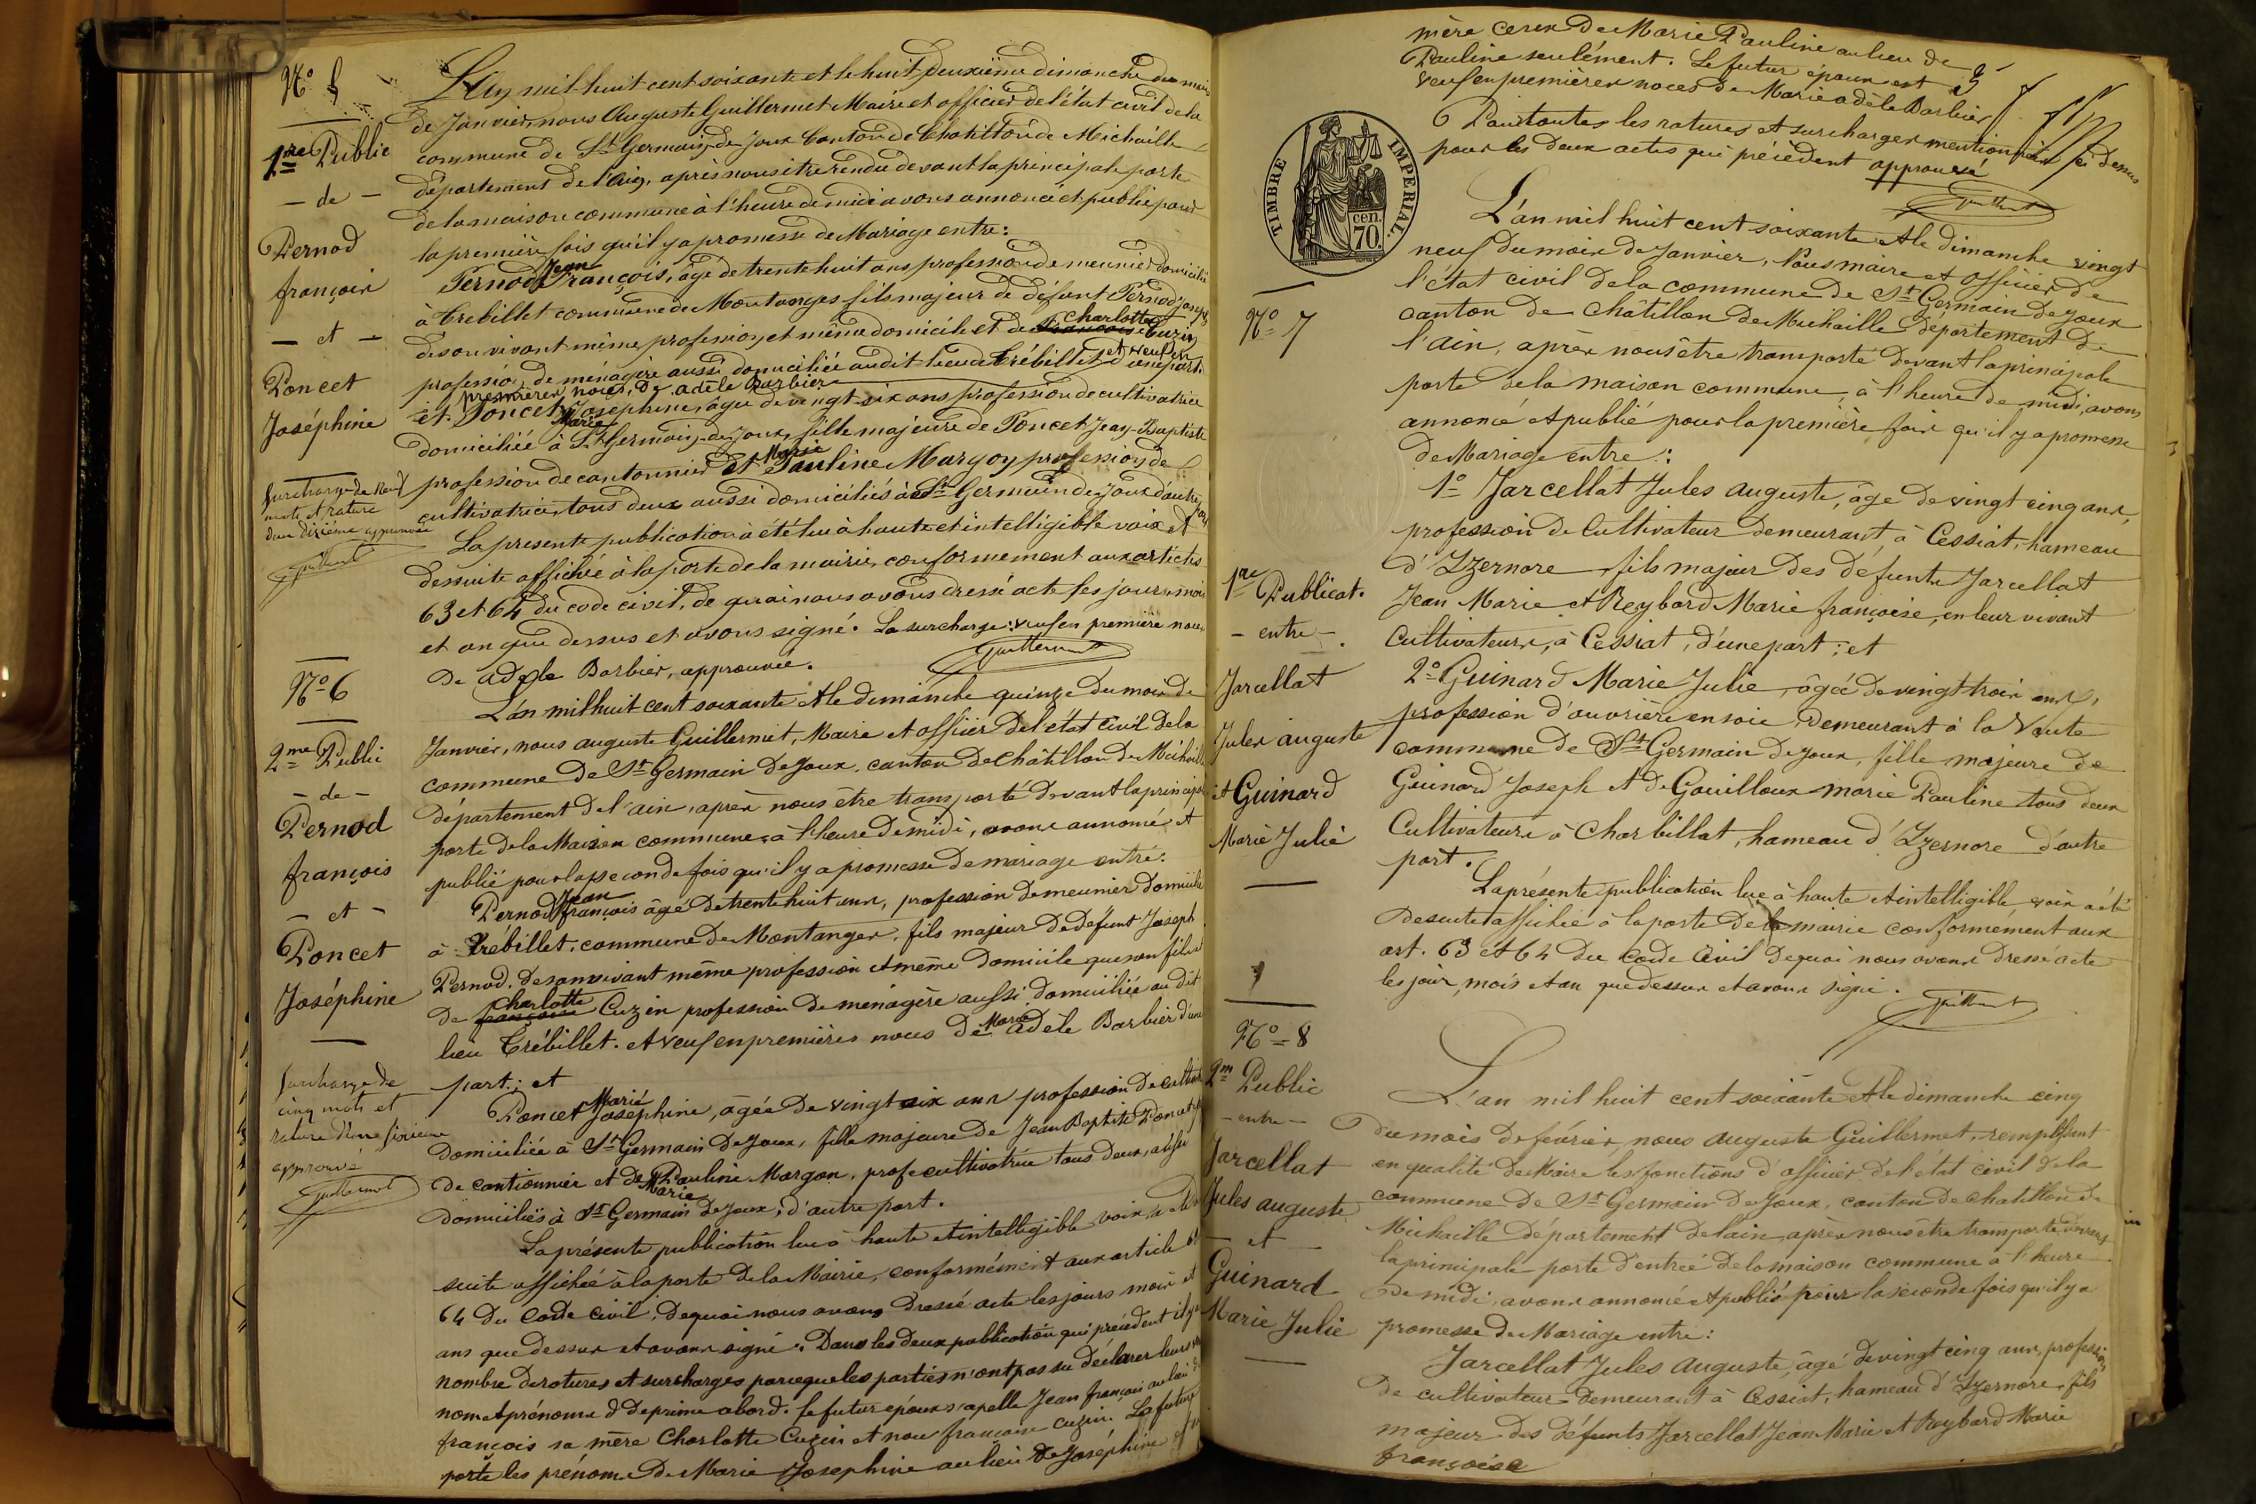 N° 5
1re Public
— de —
Pernod
françois
— et —
Poncet
Joséphine
Surcharge de neuf
mots et rature
d'une dixième approuvée
Guillermet
L'An mil huit cent soixante et le huit deuxième dimanche du mois
de Janvier, nous Auguste Guillermet Maire et officier de l'état civil de la
commune de St Germain-de-Joux Canton de Chatillon de Michaille
département de l'Ain, après nous être rendu devant la principale porte
de la maison commune à l'heure de midi avons annoncé et publié pour
la première fois qu'il y a promesse de Mariage entre:
Jean
Pernod François, âgé de trente huit ans profession de meunier domicilié
à Trebillet commune de Montanges fils majeur de défunt Pernod Joseph
Charlotte
de son vivant même profession et même domicile et de Françoise Cuzin
et veuf en
profession de ménagère aussi domiciliée audit lieu de Trébillet d'une part.
premières noces, de adèle Barbier
et Poncet Joséphine, âgée de vingt-six ans profession de cultivatrice
Marie
domiciliée à St Germain-de-Joux, fille majeure de Poncet Jean-Baptiste
Marie
profession de cantonnier et Pauline Margon profession de
cultivatrice, tous deux aussi domiciliés à St Germain de Joux d'autre part
La présente publication a été lue à haute et intelligible voix et
de suite affichée à la porte de la mairie, conformément aux articles
63 et 64 du code civil, de quoi nous avons dressé acte les jour, mois
et an que dessus et avons signé. La surcharge: veuf en première noces
De adèle Barbier, approuvée.
Guillermet
N° 6
2me Public
— de —
Pernod
françois
— et —
Poncet
Joséphine
Surcharge de
cinq mots et
rature d'une sixième
approuvé
Guillermet
L'an mil huit cent soixante et le dimanche quinze du mois de
Janvier, nous auguste Guillermet, Maire et officier de l'état civil de la
commune de St Germain de Joux, canton de Châtillon de Michaille
département de l'ain, après nous être transporté devant la principale
porte de la Maison commune, à l'heure de midi, avons annoncé et
publié pour la seconde fois qu'il y a promesse de mariage entre:
Jean
Pernod françois âgé de trente huit ans, profession de meunier domicilié
à Trébillet, commune de Montanges, fils majeur de défunt Joseph
Pernod, de son vivant même profession et même domicile que son fils et
Charlotte
de françoise Cuzin profession de ménagère aussi domiciliée au dit
Marie
lieu Trébillet. et veuf en premières noces De adèle Barbier d'une
part; et
Marie
Poncet Joséphine, âgée de vingt six ans profession de cultiv
domiciliée à St Germain de Joux, fille majeure de Jean Baptiste Poncet
de cantonnier et de Pauline Margon, prof cultivatrice tous deux, aussi
Marie
domiciliés à St Germain de Joux; d'autre part.
La présente publication lue à haute et intelligible voix, a été de
suite affichée à la porte de la Mairie, conformément aux article 63
64 du Code civil, de quoi nous avons dressé acte les jours mois et
ans que dessus et avons signé. Dans les deux publication qui précédent il y a
nombre de ratures et surcharges parceque les parties n'ont pas su déclarer leurs
nom et prénoms d de prime abord. le futur époux s'apelle Jean françois au lieu de
françois sa mère Charlotte Cuzin et non françoise cuzin. La future
porte les prénoms de Marie Josephine au lieu de Joséphine et sa
mère ceux de Marie Pauline au lieu de
Pauline seulement. Le futur époux est
veuf en premières noces de Marie adèle Barbier
Pour toutes les ratures et surcharges mentionnées ci dessus
pour les deux actes qui précèdent approuvé
Guillermet
TIMBRE IMPERIAL.
cen.
70.
N° 7
1re Publicat.
— entre —
Jarcellat
Jules auguste
et Guinard
Marie Julie
L'an mil huit cent soixante et le dimanche vingt
neuf du mois de Janvier, Nous maire et officier de
l'état civil de la commune de St Germain de Joux
canton de Châtillon de Michaille département de
l'ain, après nous être transporté devant la principale
porte de la maison commune, à l'heure de midi, avons
annoncé et publié pour la première fois qu'il y a promesse
de Mariage entre:
1° Jarcellat Jules auguste, âgé de vingt cinq ans,
profession de Cultivateur demeurant, à Cessiat, hameau
d'Izernore fils majeur des défunts Jarcellat
Jean Marie et Reybard Marie françoise, en leur vivant
Cultivateurs, à Cessiat, d'une part; et
2° Guinard Marie Julie, âgée de vingt trois ans,
profession d'ouvrière en soie, demeurant à la Voute
commune de St Germain de Joux, fille majeure de
Guinard Joseph et De Gouilloux marie Pauline tous deux
Cultivateurs à Charbillat, hameau d'Izernore d'autre
part.
La présente publication lue à haute et intelligible voix a été
de suite affichée à la porte de la mairie conformément aux
art. 63 et 64 du Code Civil de quoi nous avons dressé acte
les jour, mois et an que dessus et avons signé.
Guillermet
N° 8
2me Public
— entre —
Jarcellat
Jules auguste
— et —
Guinard
Marie Julie
L'an mil huit cent soixante et le dimanche cinq
du mois de février, nous auguste Guillermet, remplissant
en qualité de Maire les fonctions d'officier de l'état civil de la
commune de St Germain de Joux, canton de Chatillon de
Michaille département de l'ain, après nous être transporté devant
la principale porte d'entrée de la maison commune à l'heure
de midi, avons annoncé et publié pour la seconde fois qu'il y a
promesse de Mariage entre:
Jarcellat Jules auguste, âgé de vingt cinq ans, profession
de cultivateur demeurant à Cessiat, hameau d'Izernore, fils
majeur des défunts Jarcellat Jean Marie et Reybard Marie
françoise